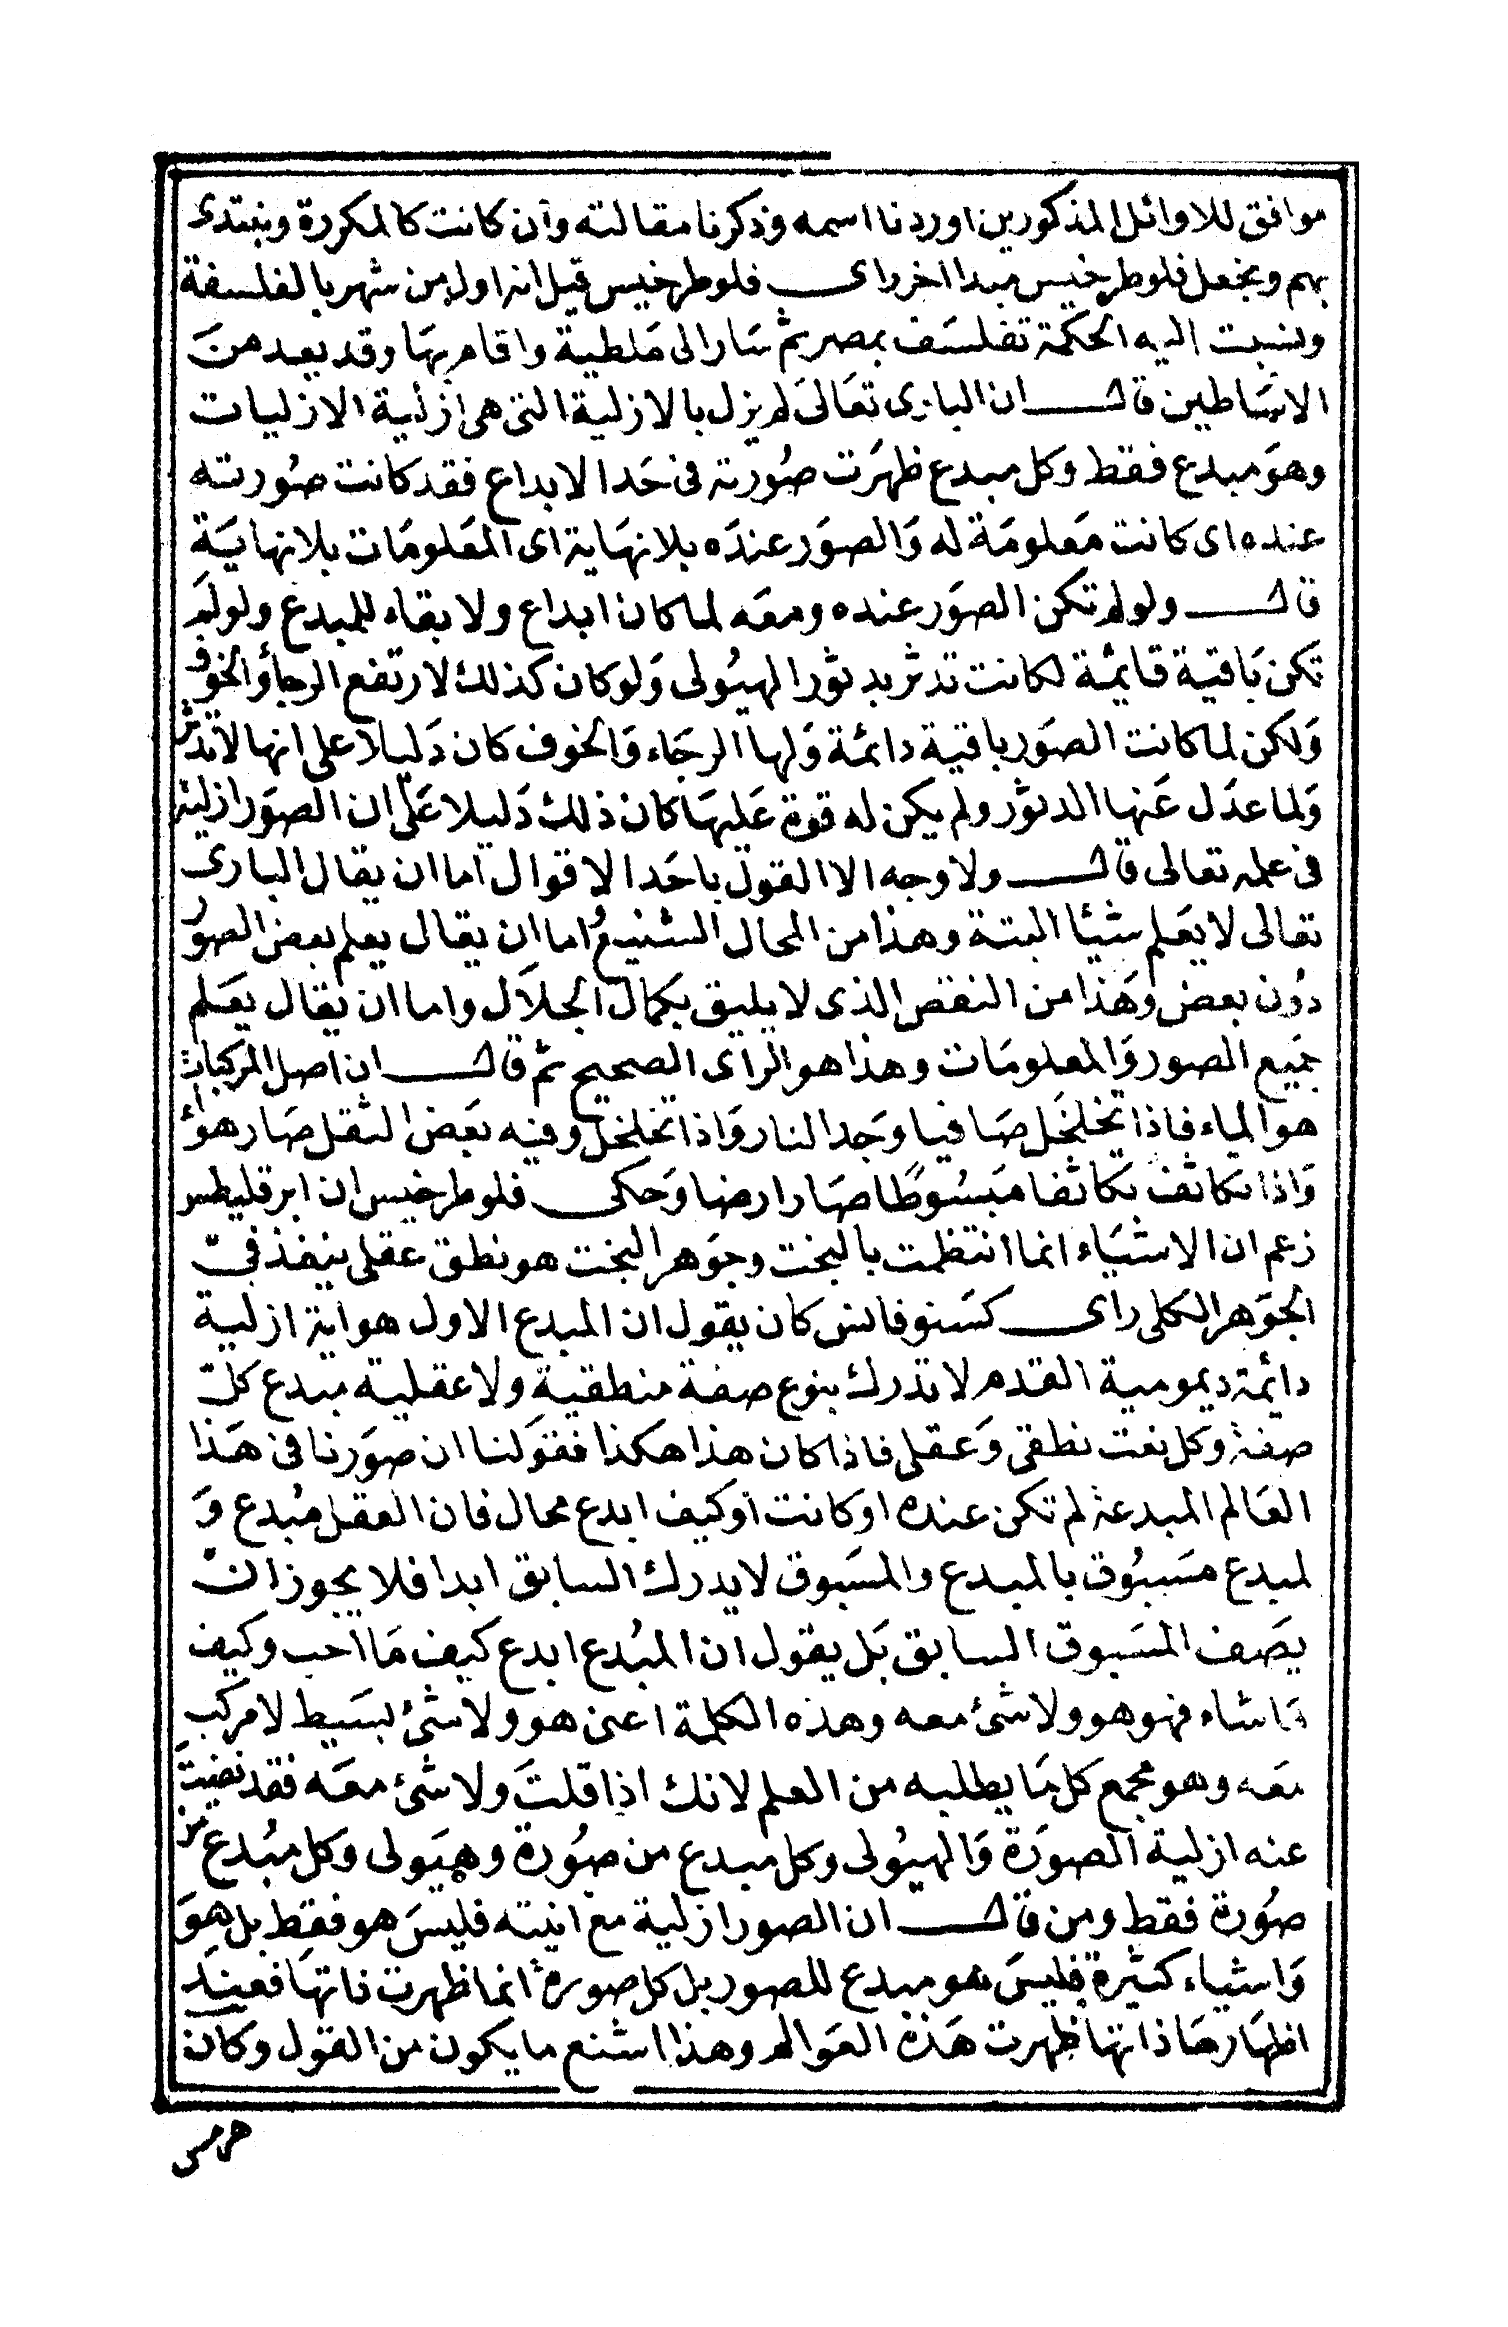 موافق للاوائل المذكورين اوردنا اسمه وذكرنا مقالته وان كانت كالمكررة ونبتدى
بهم ونجعل فلوطرخيس مبدا اخر راى فلوطرخيس قيل انه اول من شهر بالفلسفة
ونسبت اليه الحكمة تفلسَف بمصر ثم سَار الى مَلطية واقام بهَا وقد يعد منَ
الاسَاطين قال ان البارى تعَالىَ لم يزل بالازلية التى هى ازلية الازليات
وهوَ مبدع فقط وكل مبدع ظهرَت صُورته فى حَد الابداع فقد كانت صُورته
عنده اى كانت مَعلومَة له وَالصوَر عندَه بلا نهَاية اى المَعلومَات بلا نهايَة
قال ولو لم تكن الصوَر عنده ومعَه لما كان ابداع ولا بقاء للمبدع ولو لمَ
تكن بَاقية قايمة لكانت تدثر بدثور الهيُولى وَلو كان كذلك لارتفع الرجاَ وَالخوف
وَلكن لما كانت الصوَر باقية دائمة وَلها الرجَاء وَالخوف كان دَليلا على انها لا تدثر
وَلما عدَل عَنها الدثور ولم يكن له قوة عَليهَا كان ذلك دَليلا عَلى ان الصوَر ازلية
فى علمه تعالى قال ولا وجه الا القول باحَد الاقوال اما ان يقال البارى
تعالى لا يعَلم شيئا البتة وهذا من المحال الشنيع اما ان يقال يعلم بعض الصور
دُون بعض وَهَذا من النقص الذى لا يليق بكمال الجلاَل واما ان يقال يعَلم
جمَيع الصور وَالمعلومَات وهذا هو الراى الصحيح ثم قال ان اصل المركبات
هو الماء فاذا تخلخَل صَافيا وَجد النار وَاذا تخلخل وفيه بعَض الثقل صَار هواَء
وَاذا تكاثف تكاثفا مبَسُوطًا صَار ارضا وَحكى فلوطرخيس ان ابرقليطس
زعم ان الاشيَاء انما انتظمت بالبخت وجوَهر البخت هو نطق عقلى ينفذ فى
الجوَهر الكلى راى كسَنوفانس كان يقول ان المبدع الاول هو انية ازلية
دائمة ديمومية القدم لا تدرك بنوع صفة منطقية ولا عقلية مبدع كل
صفة وكل نعت نطقى وَعقلى فاذا كان هذا هكذا فقوَلنا ان صوَرنا فى هَذا
العَالم المبدعة لم تكن عنده او كانت اَو كيف ابدع محال فان العقل مُبدع وَ
لمبدع مسَبُوق بالمبدع والمسَبوق لا يدرك السابق ابدا فلا يجوز ان
يصَف المسَبوق السابق بَل يقول ان المبُدع ابدع كيف مَا احب وكيف
مَا شاء فهو هو ولا شئ معه وهذه الكلمة اعنى هو ولا شئ بسَيط لا مركب
معَه وهو مجمع كل مَا يطلبه من العلم لانك اذا قلتَ ولا شئ معَه فقد نفيتَ
عنه ازلية الصورَة وَالهيُولى وكل مبدع من صُورة وهيَولى وكل مبُدع من
صُورة فقط ومن قال ان الصور ازلية مع انيته فليسَ هو فقط بل هوَ
وَاشياء كثيرة فليسَ هو مبدع للصور بل كل صورة انما ظهرت ذاتهَا فعند
اظهَارهَا ذاتها ظهرت هَذه العَوالم وهذا اشنع ما يكون من القول وكان
هرمس